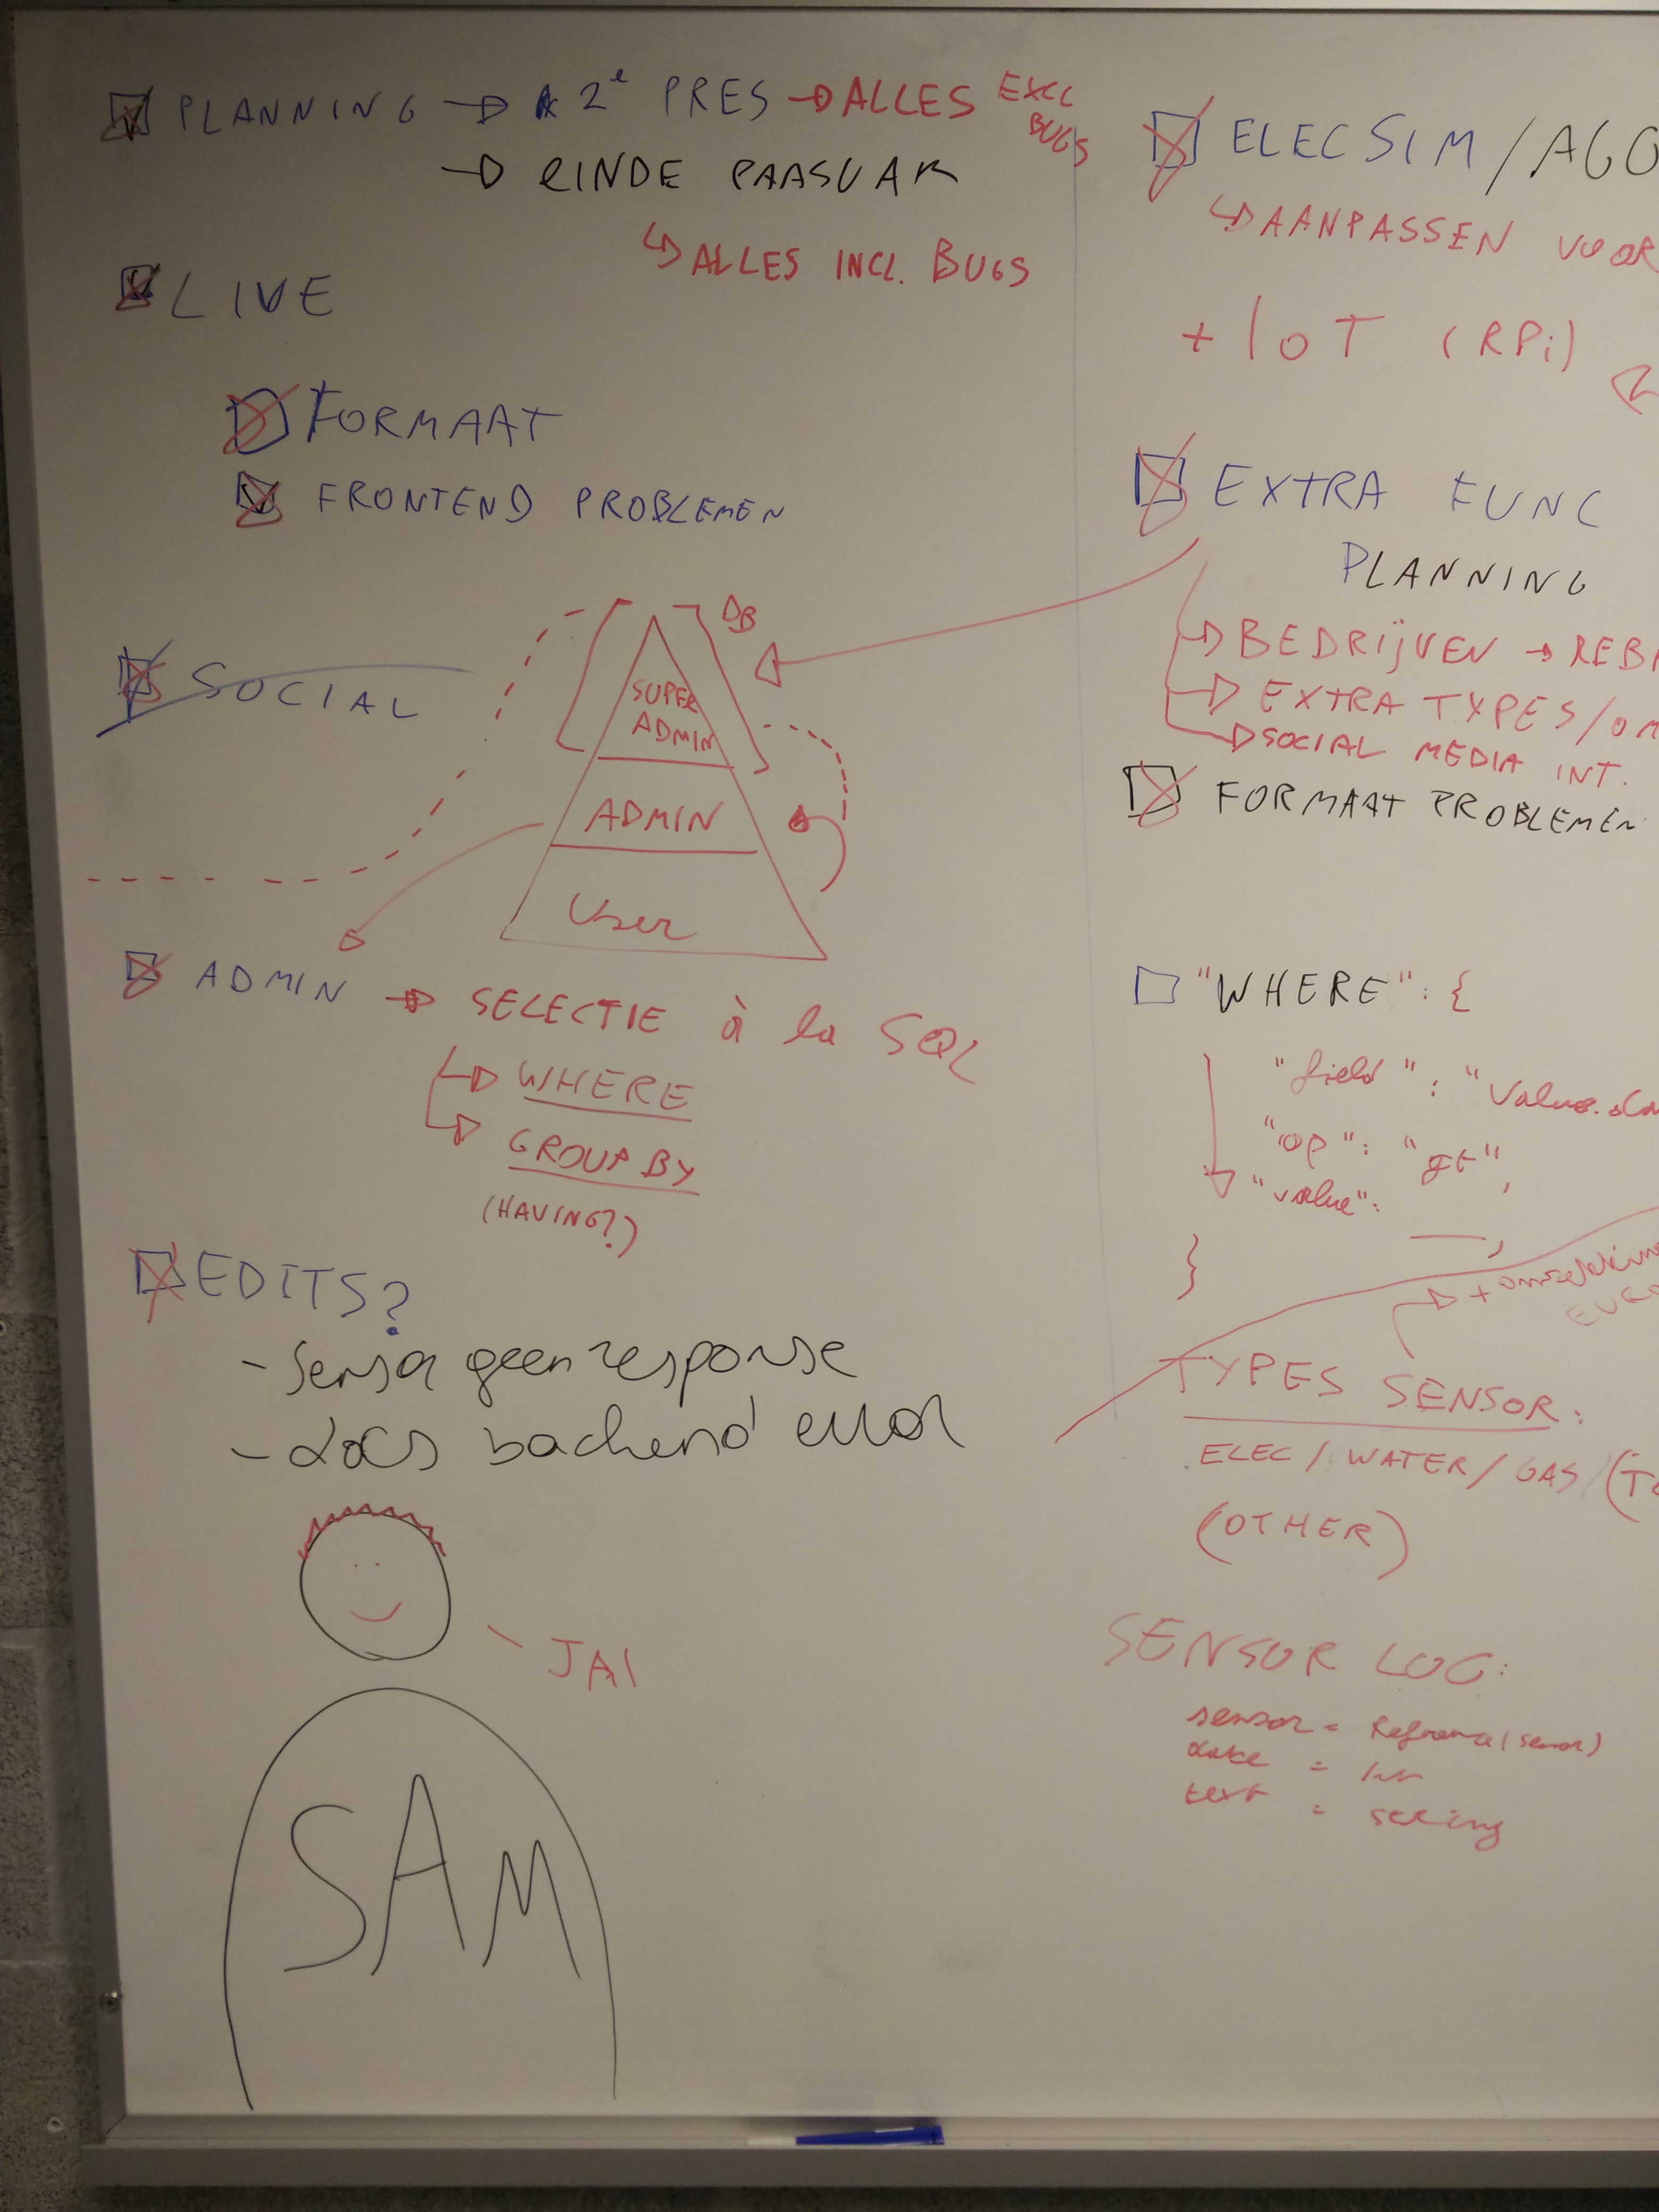 PLANNING → 2e PRES → ALLES EXCL BUGS
→ EINDE PAASVAK
↳ ALLES INCL. BUGS
LIVE
FORMAAT
FRONTEND PROBLEMEN
SOCIAL
DB
SUPER
ADMIN
ADMIN
User
ADMIN → SELECTIE à la SQL
→ WHERE
→ GROUP BY
(HAVING?)
EDITS?
- Sensor geen response
- docs backend error
JAI
SAM
ELECSIM/AGG
↳ AANPASSEN VOOR
+ IoT (RPi)
EXTRA FUNC
PLANNING
→ BEDRIJVEN → REB
→ EXTRA TYPES/OM
→ SOCIAL MEDIA INT.
FORMAAT PROBLEMEN
"WHERE": {
"field": "Value.
"op": "gt",
"value": ___,
}
→ +
TYPES SENSOR:
ELEC / WATER / GAS / (T
(OTHER)
SENSOR LOG:
sensor = Reference(sensor)
date = Int
text = string